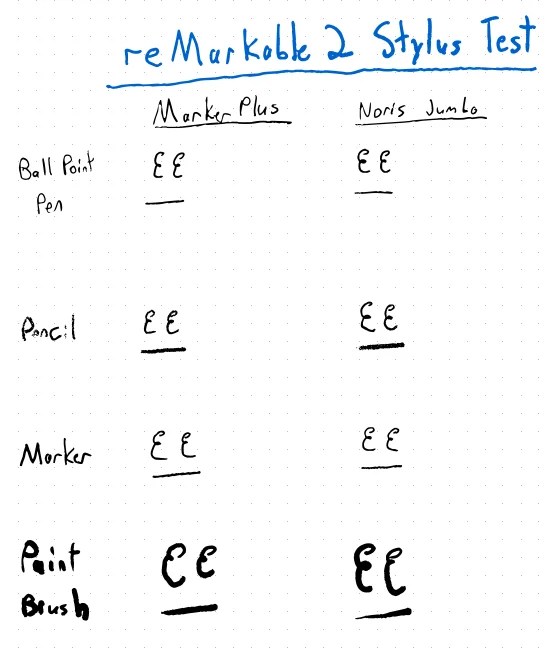 reMarkable 2 Stylus Test
Marker Plus Noris Jumbo
Ball Point Pen EE EE
Pencil EE EE
Marker EE EE
Paint Brush EE EE